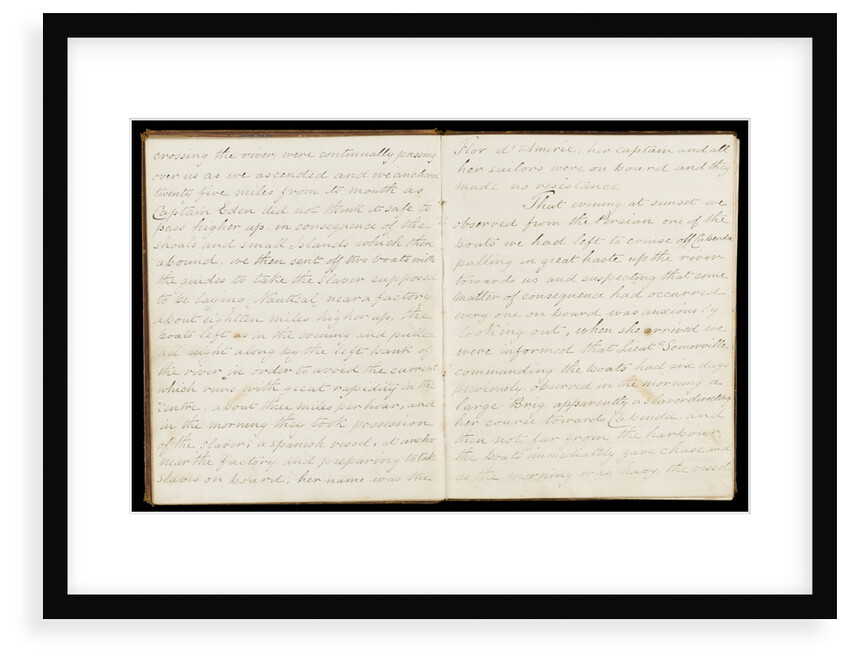 crossing the river, were continually passing
over us as we ascended and we anchored
twenty five miles from its mouth as
Captain Eden did not think it safe to
pass higher up, in consequence of the
shoals and small Islands which then
abound, we then sent off two boats with
the guides to take the Slaver supposed
to be laying Nautical near a factory
about eighteen miles higher up, the
boats left us in the evening and pulled
all night along by the left bank of
the river in order to avoid the current
which runs with great rapidity in the
centre. about three miles per hour, and
in the morning they took possession
of the slaver, a Spanish vessel, at anchor
near the factory and preparing to take
slaves on board, her name was the
Flor d'Americ, her captain and all
her sailors were on board and they
made no resistance
That evening at sunset we
observed from the Persian one of the
boats we had left to cruise off Cabenda
pulling in great haste up the river
towards us and suspecting that some
matter of consequence had occurred
every one on board was anxiously
looking out, when she arrived we
were informed that Lieut. Somerville
commanding the boats had six days
previously observed in the morning a
large Brig apparently a slaver directing
her course towards Cabenda and
then not far from the harbour
the boats immediately gave chase and
as the morning was hazy, the vessel